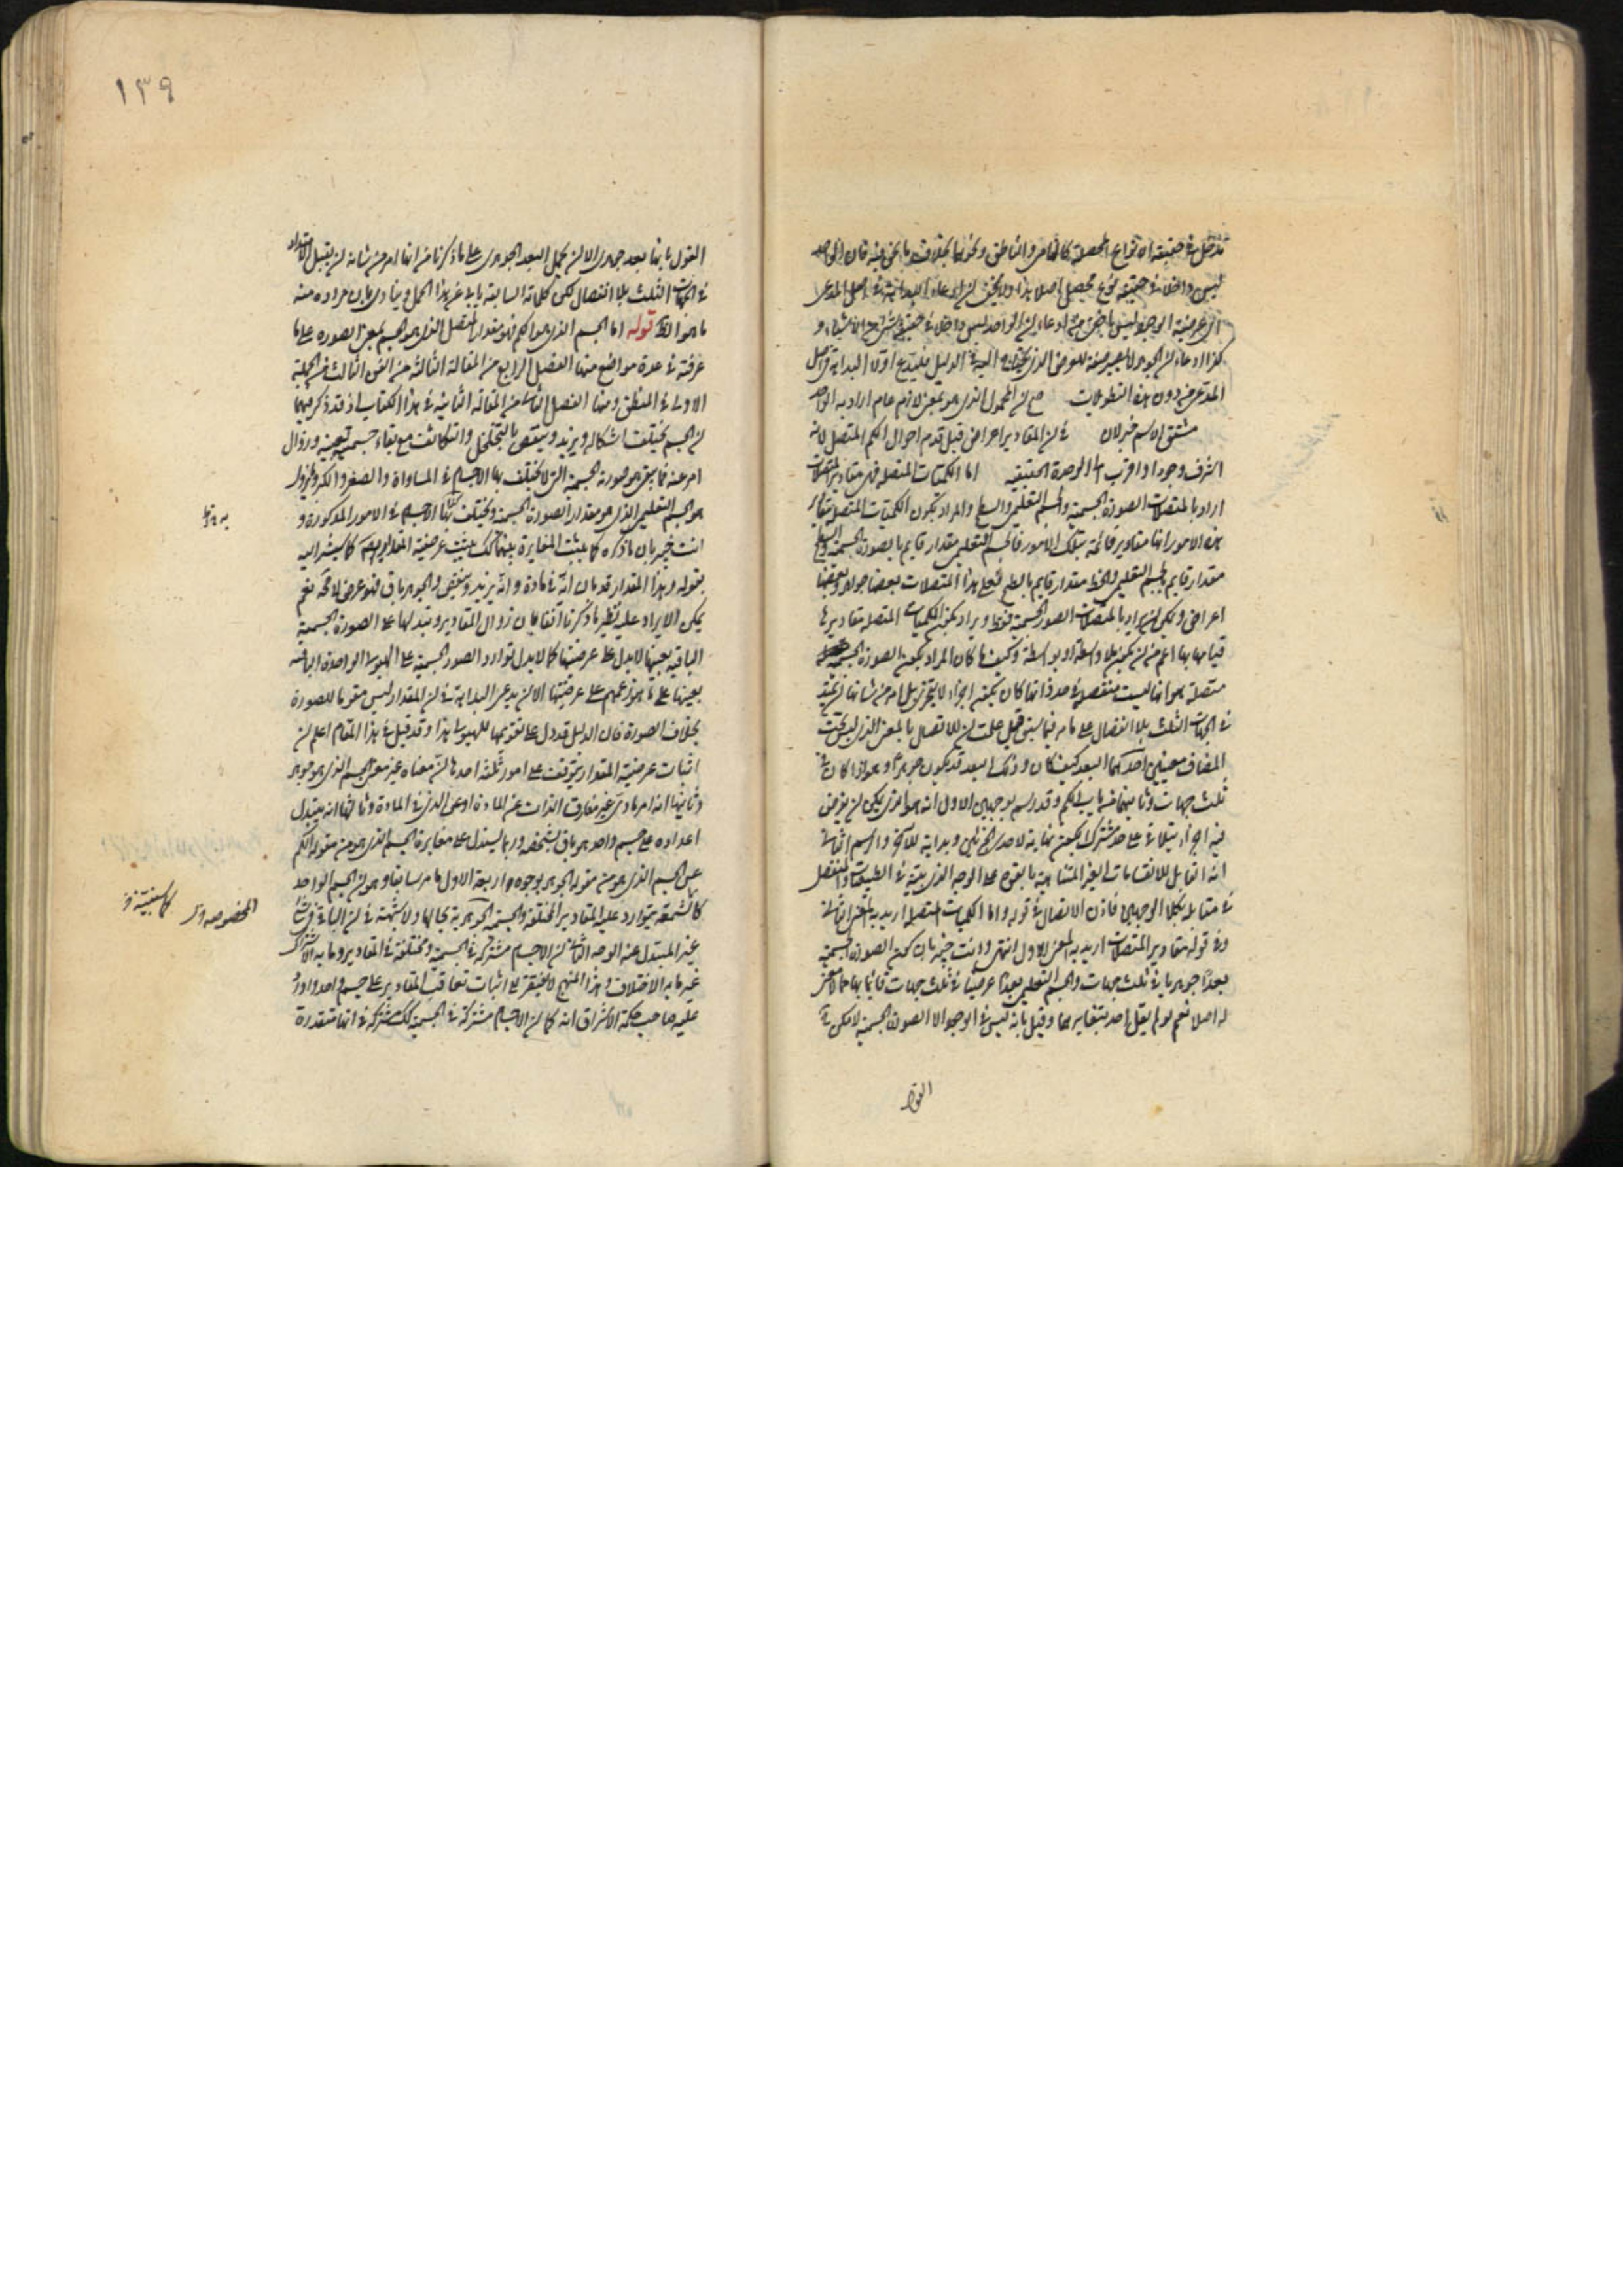 تدخل في حقيقة الانواع المحصلة كالماس والناطق ونحوهما بخلاف ما نحن فيه فان الواحد
ليس داخلا في حقيقة نوع محصل اصلا هذا ولا يخفى ان ادعاء البداهة في اصل المدعى
اي عرضية الوحدة ليس باخفى من ادعاء ان الواحد ليس داخلا في حقيقة شيء من الاشياء و
كذا ادعاء ان الجوهر لا يصير صفة للعرض الذي يحتاج اليه في الدليل فليدع اولا البداهة في اصل
المدعى من دون هذه التطويلات مع ان المحمول الذي هو بمعنى لازم عام اراد به الواحد
مشتق الاسم خبر لان في ان المقادير اعراض قبل قدم احوال الكم المتصل لانه
اشرف وجودا واقرب الى الوحدة الحقيقية اما الكميات المتصلة فهي مقادير المتصلات
اراد بالمتصلات الصورة الجسمية والجسم التعليمي والسطح والمراد بكون الكميات المتصلة مقادير
هذه الامور انها مقادير قائمة بتلك الامور فالجسم التعليمي مقدار قايم بالصورة الجسمية والسطح
مقدار قايم بالجسم التعليمي والخط مقدار قايم بالسطح فعلى هذا المتصلات بعضها جواهر وبعضها
اعراض ويمكن ان يراد بالمتصلات الصور الجسمية فقط ويراد بكون الكميات المتصلة مقاديرها
قيامها بها اعم من ان يكون بلا واسطة او بواسطة وكيف ما كان المراد بكون الصورة الجسمية
متصلة هو انها ليست منفصلة في حد ذاتها كان يكون اجزاء لا يتجزى بل امر من شانها ان يمتد
في الجهات الثلث بلا انفصال على ما مر فيما سبق قيل علمت ان للاتصال بالمعنى الذي ليس تحت
المضاف معنيين احدهما البعد كيف كان وذلك البعد قد يكون جوهرا وهو اذا كان في
ثلث جهات وثانيهما فيه باب الكم وقد رسم بوجهين الاول انه هو الذي يمكن ان يفرض
فيه اجزاء يتلاقى على حد مشترك يكون نهاية لاحد الجزئين وبداية للآخر والرسم الثاني
انه القابل للانقسامات الغير المتناهية بالقوة على الوجه الذي بينه في الطبيعيات والمنفصل
في مقابله بكلا الوجهين فاذن الاتصال في قوله واما الكميات المتصلة اريد به المعنى الثاني
وفي قوله مقادير المتصلات اريد به المعنى الاول انتهى وانت خبير بان كون الصورة الجسمية
بعدا جوهريا في ثلث جهات والجسم التعليمي بعدا عرضيا في ثلث جهات قائما بها مما لا معنى
له اصلا نعم لو لم يقل احد بتغايرهما وقيل بانه ليس في الوجود الا الصورة الجسمية لامكن
القول
١٣٩
القول بانها بعد جوهري الا ان يحمل البعد الجوهري على ما ذكرنا من انها امر من شانه ان يقبل الامتداد
في الجهات الثلث بلا انفصال لكن كلماته السابقة يابى عن هذا الحمل وينادي بان مراده منه
ما هو الظ قوله اما الجسم الذي هو الكم فهو مقدار المتصل الذي هو الجسم بمعنى الصورة على ما
عرفته في عدة مواضع منها الفصل الرابع من المقالة الثالثة من الفن الثالث من الجملة
الاولى في المنطق ومنها الفصل الثاني من المقالة الثانية في هذا الكتاب اذ قد ذكر فيهما
ان الجسم يختلف اشكاله ويزيد وينقص بالتخلخل والتكاثف مع بقاء جسمية بعينه وزوال
امر عنه فما بقي هو صورته الجسمية التي لا يختلف بها الاجسام في المساواة والصغر والكبر وما يزول
هو الجسم التعليمي الذي هو مقدار الصورة الجسمية ويختلف بها الاجسام في الامور المذكورة و
انت خبير بان ما ذكره كما يثبت المغايرة بينهما كك يثبت عرضية المقدار ايضا كما سيشير اليه
بقوله وهذا المقدار قد بان انه في مادة وانه يزيد وينقص والجوهر باق فهو عرض لا محة نعم
يمكن الايراد عليه نظير ما ذكرنا آنفا بان زوال المقادير وتبدلها على الصورة الجسمية
الباقية بعينها لا يدل على عرضيتها كما لا يدل توارد الصور الجسمية على الهيولى الواحدة الباقية
بعينها على ما هو زعمهم على عرضيتها الا ان يدعى البداهة في ان المقدار ليس مقوما للصورة
بخلاف الصورة فان الدليل قد دل على تقويمها للهيولى هذا وقد قيل في هذا المقام اعلم ان
اثبات عرضية المقدار يتوقف على امور ثلثة احدها ان معناه غير معنى الجسم الذي هو جوهر
وثانيها انه امر مادي غير مفارق الذات عن المادة اوعى الذي في المادة وثالثها انه يتبدل
اعداده على جسم واحد هو باق بشخصه وربما يستدل على مغايرة الجسم الذي هو من مقولة الكم
عن الجسم الذي هو من مقولة الجوهر بوجوه اربعة الاول ما مر سابقا وهو ان الجسم الواحد
كالشمعة يتوارد عليه المقادير المختلفة والجسمية الجوهرية بحالها ولا شبهة في ان الباقي في شيء
غير المتبدل عنه الوجه الثاني ان الاجسام مشتركة في الجسمية ومختلفة في المقادير وما به الاشتراك
غير ما به الاختلاف وهذا المنهج لا يفتقر الى اثبات تعاقب المقادير على جسم واحد واورد
عليه صاحب حكمة الاشراق انه كما ان الاجسام مشتركة في الجسمية كك مشتركة في انها متقدرة
المخصوصة